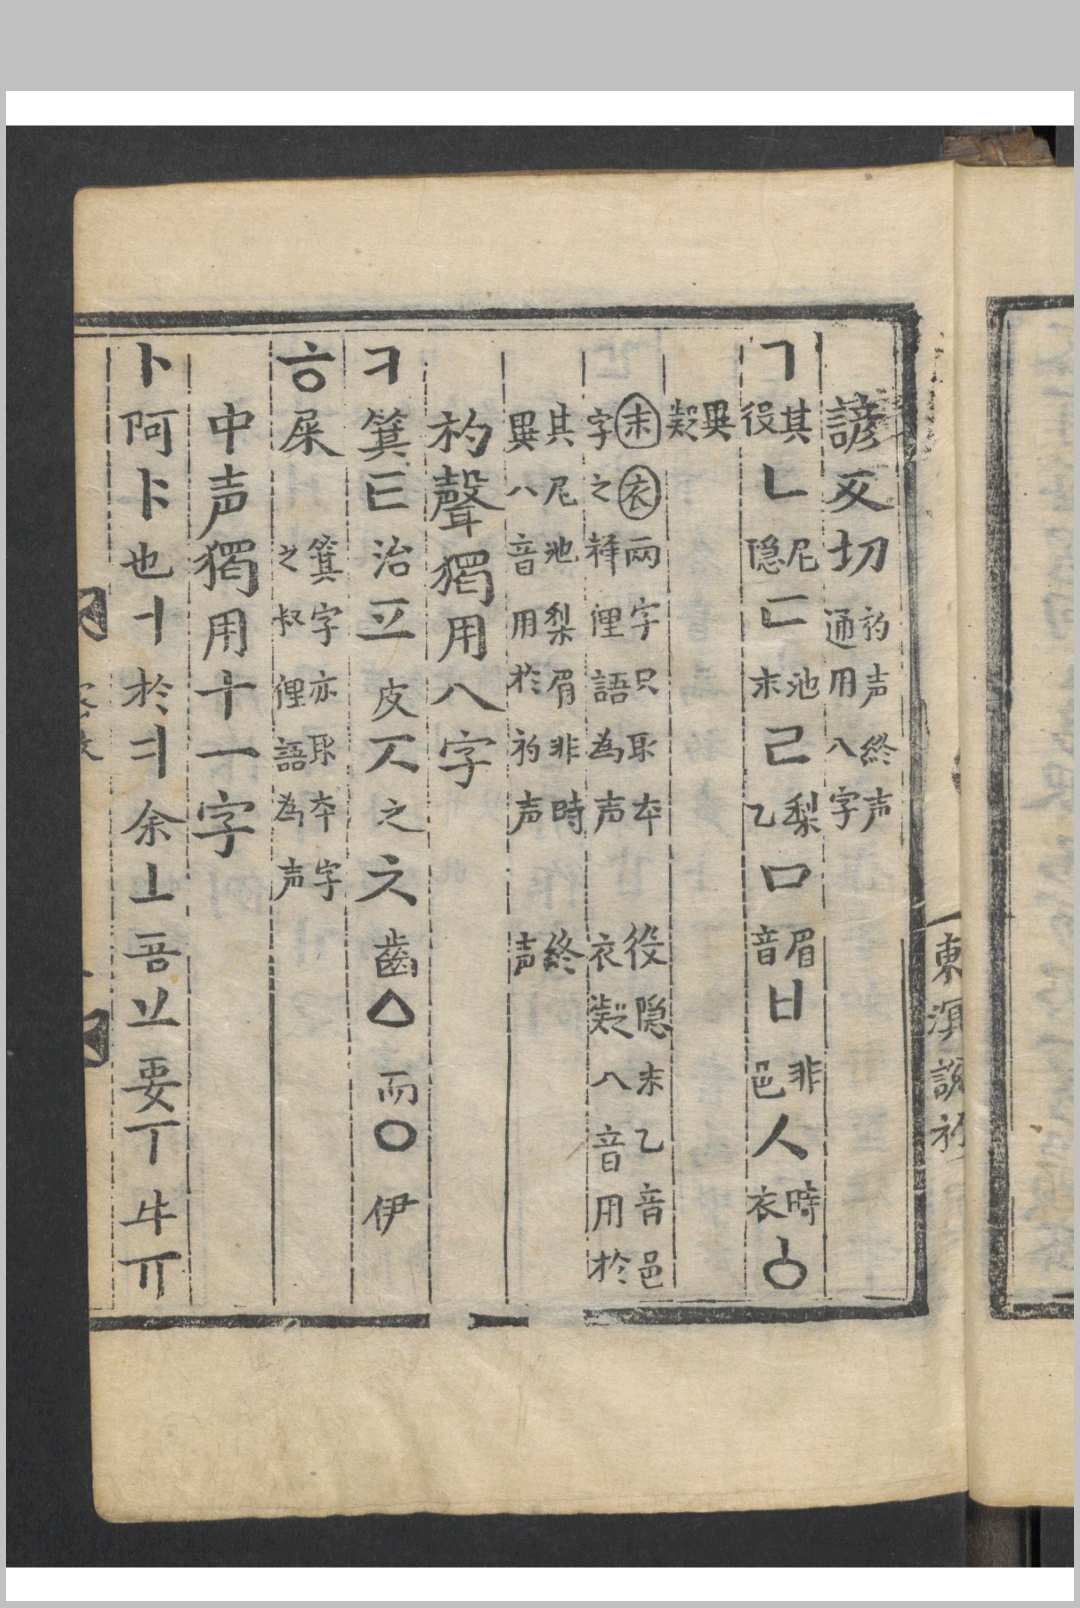 東溟
諺文切初声終声通用八字
ㄱ其役ㄴ尼隐ㄷ池末ㄹ梨乙ㅁ眉音ㅂ非邑ㅅ時衣ㆁ
異凝
末衣兩字只取夲字之釋俚語為声役隐末乙音邑衣凝八音用於
其尼池梨眉非時異八音用於初声終声
初聲獨用八字
ㅋ箕ㅌ治ㅍ皮ㅈ之ㅊ齒ㅿ而ㅇ伊
ㅎ屎箕字亦取夲字之釈俚語為声
中声獨用十一字
ㅏ阿ㅑ也ㅓ於ㅕ余ㅗ吾ㅛ要ㅜ牛ㅠ